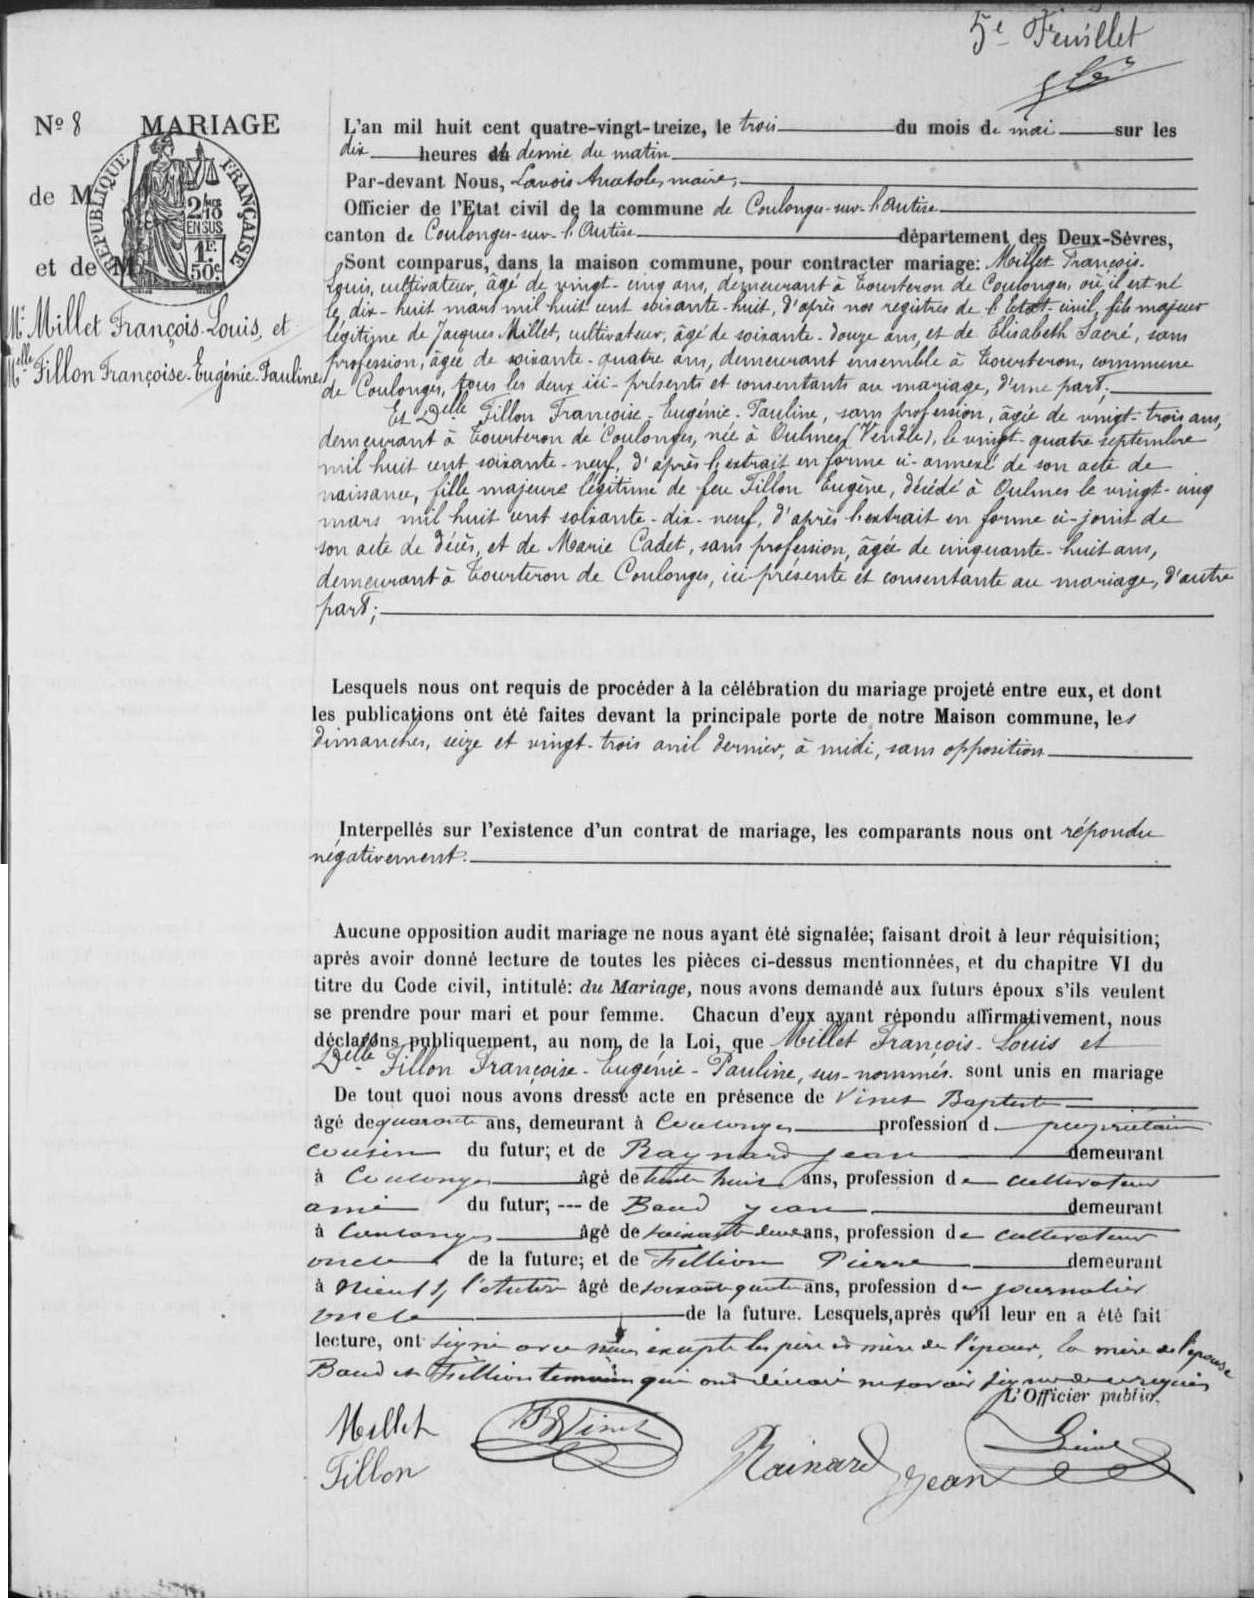 5e Feuillet
Nº 8 MARIAGE
de M
et de M
RÉPUBLIQUE FRANÇAISE
2/10
EN SUS
1F.
50c.
Mr. Millet François-Louis, et
Melle Fillon Françoise-Eugénie-Pauline
L'an mil huit cent quatre-vingt-treize, le trois du mois de mai sur les
dix heures et demie du matin
Par-devant Nous, Anatole, maire,
Officier de l'Etat civil de la commune de Coulonges-sur-l'Autise
canton de Coulonges-sur-l'Autise département des Deux-Sèvres,
Sont comparus, dans la maison commune, pour contracter mariage: Millet François-
Louis, cultivateur, âgé de vingt-cinq ans, demeurant à Tourteron de Coulonges, où il est né
le dix-huit mars mil huit cent soixante-huit, d'après nos registres de l'Etat-civil, fils majeur
légitime de Jacques Millet, cultivateur, âgé de soixante-douze ans, et de Elisabeth Sacré, sans
profession, âgée de soixante-quatre ans, demeurant ensemble à Tourteron, commune
de Coulonges, tous les deux ici-présents et consentants au mariage, d'une part;
Et Delle Fillon Françoise-Eugénie-Pauline, sans profession, âgée de vingt-trois ans,
demeurant à Tourteron de Coulonges, née à Oulmes (Vendée), le vingt-quatre septembre
mil huit cent soixante-neuf, d'après l'extrait en forme ci-annexé de son acte de
naissance, fille majeure légitime de feu Fillon Eugène, décédé à Oulmes le vingt-cinq
mars mil huit cent soixante-dix-neuf, d'après l'extrait en forme ci-joint de
son acte de décès, et de Marie Cadet, sans profession, âgée de cinquante-huit ans,
demeurant à Tourteron de Coulonges, ici présente et consentante au mariage, d'autre
part;
Lesquels nous ont requis de procéder à la célébration du mariage projeté entre eux, et dont
les publications ont été faites devant la principale porte de notre Maison commune, les
dimanches, seize et vingt-trois avril dernier, à midi, sans opposition
Interpellés sur l'existence d'un contrat de mariage, les comparants nous ont répondu
négativement.
Aucune opposition audit mariage ne nous ayant été signalée; faisant droit à leur réquisition;
après avoir donné lecture de toutes les pièces ci-dessus mentionnées, et du chapitre VI du
titre du Code civil, intitulé: du Mariage, nous avons demandé aux futurs époux s'ils veulent
se prendre pour mari et pour femme. Chacun d'eux ayant répondu affirmativement, nous
déclarons publiquement, au nom de la Loi, que Millet François-Louis et
Delle Fillon Françoise-Eugénie-Pauline, sus-nommés. sont unis en mariage
De tout quoi nous avons dressé acte en présence de Vinet Baptiste
âgé de quarante ans, demeurant à Coulonges profession d propriétaire
cousin du futur; et de Raynard Jean demeurant
à Coulonges âgé de trente huit ans, profession de cultivateur
ami du futur; --- de Baud Jean demeurant
à Coulonges âgé de soixante deux ans, profession de cultivateur
oncle de la future; et de Fillion Pierre demeurant
à Nieul s/ l'Autise âgé de soixante quatre ans, profession de journalier
oncle de la future. Lesquels, après qu'il leur en a été fait
lecture, ont signé avec nous excepté les père et mère de l'époux, la mère de l'épouse
Baud et Fillion témoins qui ont déclaré ne savoir signer de ce requis
L'Officier public,
Millet
Fillon
Vinet
Rainard
Jean